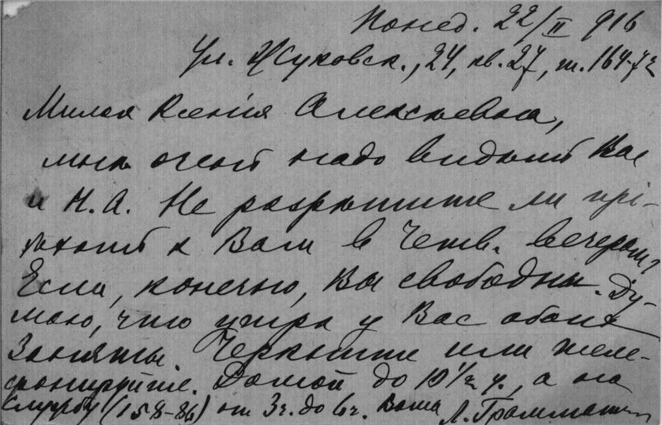 Понед. 22/II 916
Ул. Жуковск., 24, кв. 27, т. 164-72
Милая Ксенія Алексѣевна,
мнѣ очень надо видѣть Вас
и Н.А. Не разрѣшите ли прі-
ѣхать к Вам в Четв. вечером?
Если, конечно, Вы свободны. Ду-
маю, что утра у Вас обоих
заняты. Черкните или теле-
фонируйте. Домой до 10½ ч., а на
службу (158-86) от 3 ч. до 6 ч. Ваша